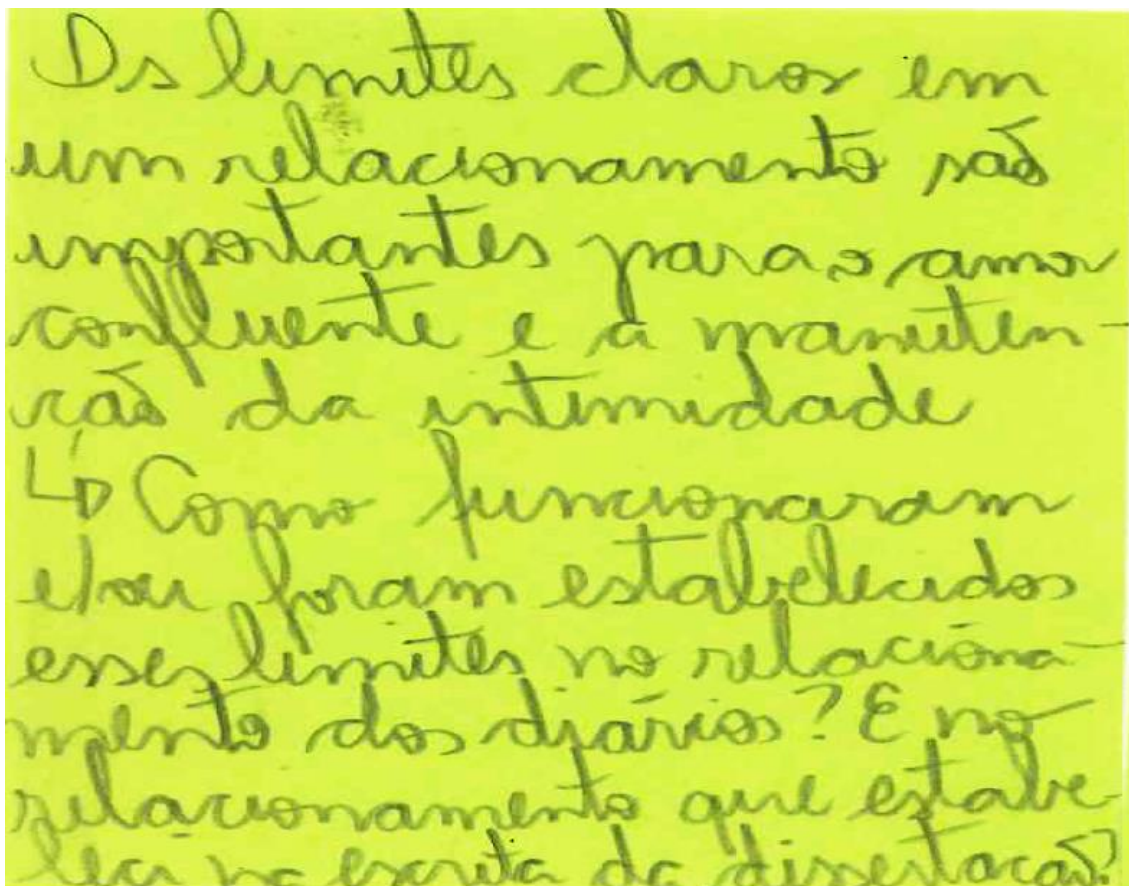 Os limites claros em
um relacionamento são
importantes para o amor
confluente e a manuten-
ção da intimidade
↳ Como funcionaram
e/ou foram estabelecidos
esses limites no relaciona-
mento dos diários? E no
relacionamento que estabe-
leci na escrita da dissertação?